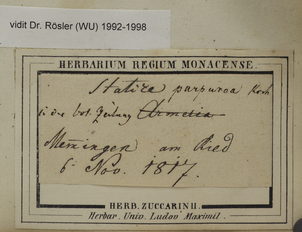 vidit Dr. Rösler (WU) 1992-1998
HERBARIUM REGIUM MONACENSE.
Statice purpurea Koch
in der bot. Zeitung Armeria
Memingen am Ried
6 Nov. 1817.
HERB. ZUCCARINII.
Herbar. Univ. Ludov. Maximil.